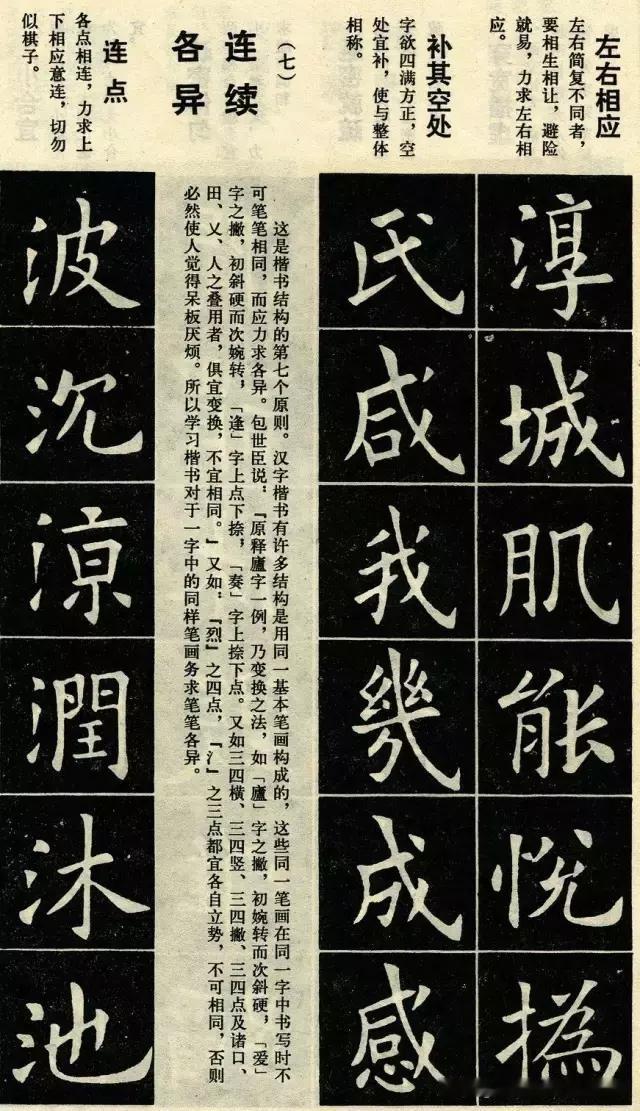 左右相应
左右简复不同者，
要相生相让，避险
就易，力求左右相
应。
淳城肌能悦撝
补其空处
字欲四满方正，空
处宜补，使与整体
相称。
氏咸我幾成感
（七）
连续
各异
这是楷书结构的第七个原则。汉字楷书有许多结构是用同一基本笔画构成的，这些同一笔画在同一字中书写时不
可笔笔相同，而应力求各异。包世臣说：『原释廬字一例，乃变换之法，如「廬」字之撇，初婉转而次斜硬，「爱」
字之撇，初斜硬而次婉转，「逢」字上点下捺，「奏」字上捺下点。又如三四横、三四竖、三四撇、三四点及诸口、
田、又、人之叠用者，俱宜变换，不宜相同。』又如：『烈』之四点，『氵』之三点都宜各自立势，不可相同，否则
必然使人觉得呆板厌烦。所以学习楷书对于一字中的同样笔画务求笔笔各异。
连点
各点相连，力求上
下相应意连，切勿
似棋子。
波沉涼潤沐池